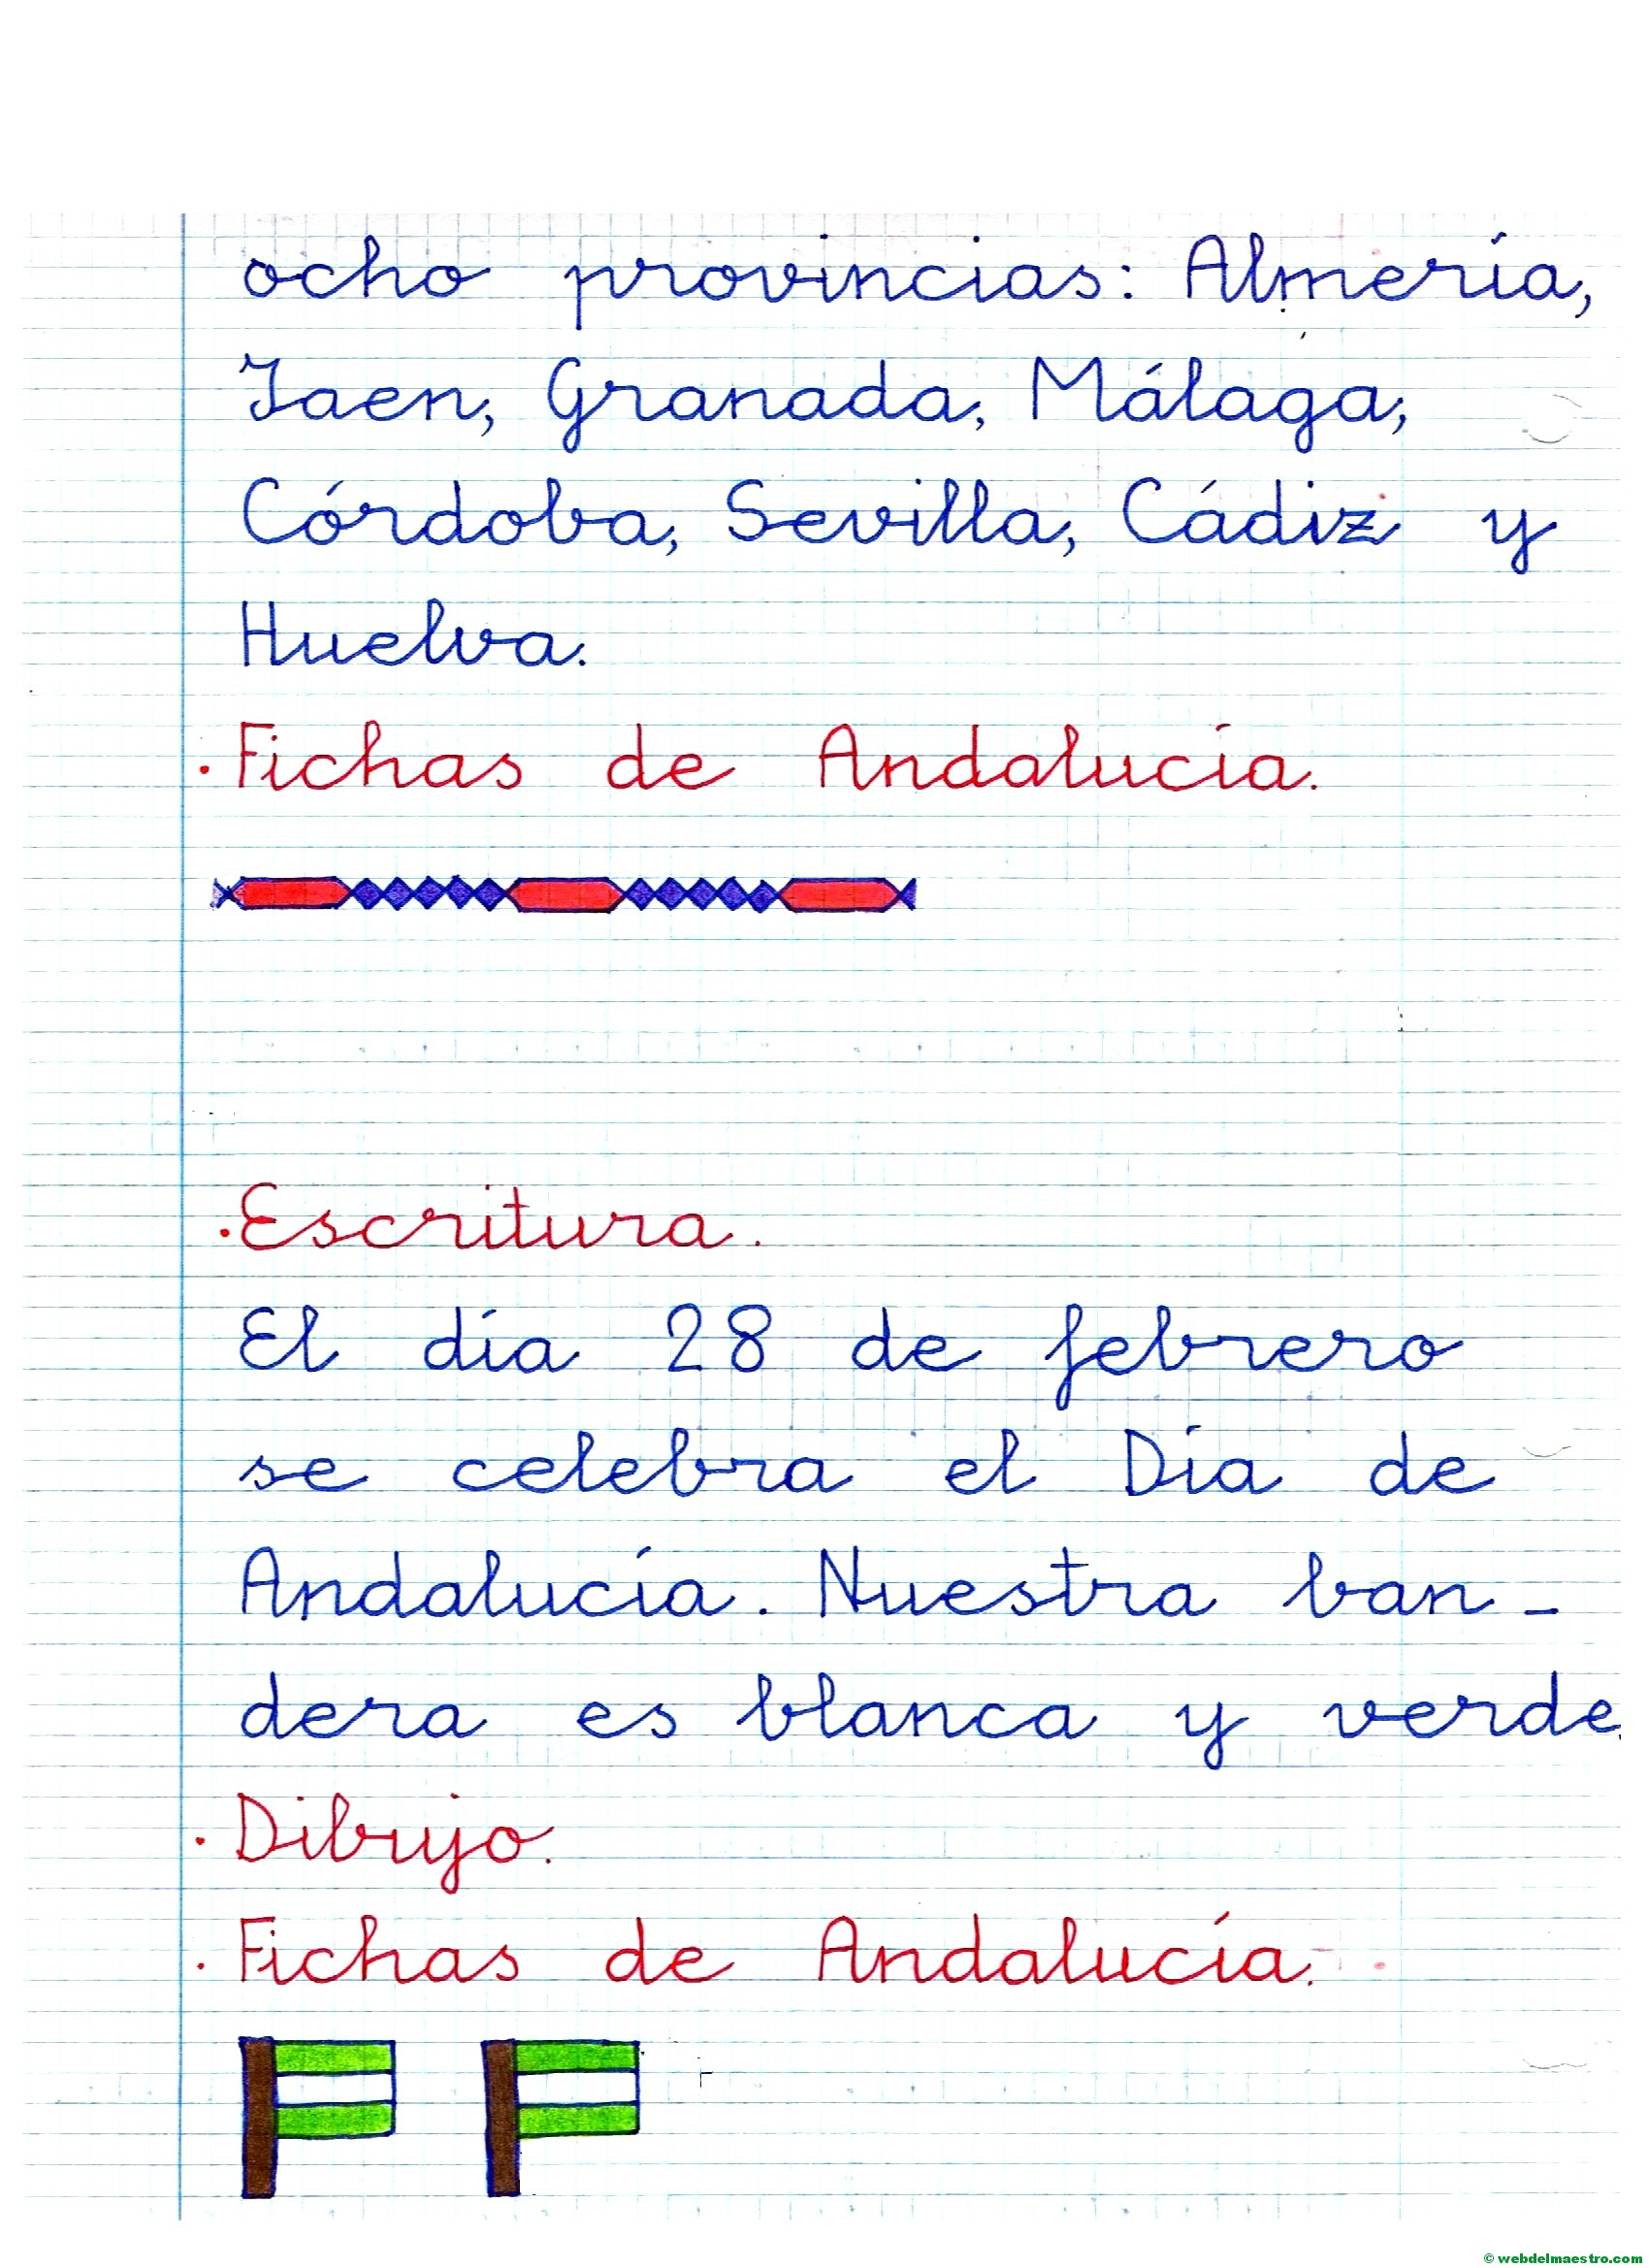 ocho provincias: Almería,
Jaen, Granada, Málaga,
Córdoba, Sevilla, Cádiz y
Huelva.
. Fichas de Andalucía.
. Escritura.
El día 28 de febrero
se celebra el Día de
Andalucía. Nuestra ban-
dera es blanca y verde.
. Dibujo.
. Fichas de Andalucía.
© webdelmaestro.com